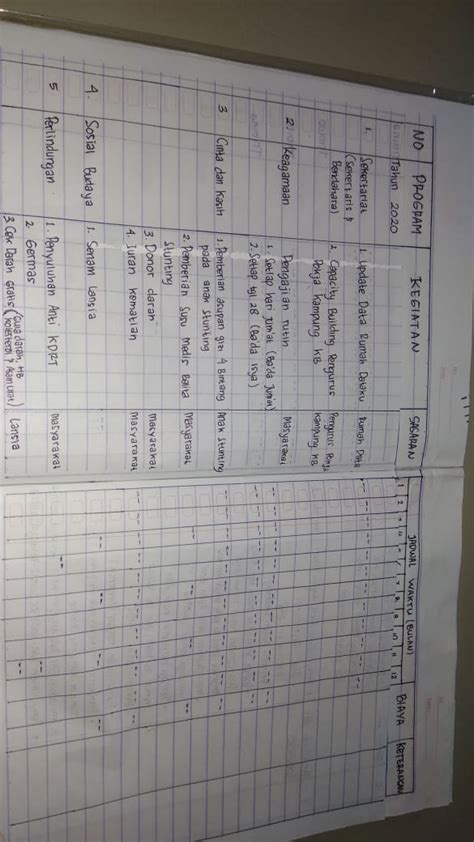 NO PROGRAM KEGIATAN SASARAN JADWAL WAKTU (BULAN) BIAYA KETERANGAN
1 2 3 4 5 6 7 8 9 10 11 12
Tahun 2020
1. Sekertariat 1. Update Data Rumah Dataku Rumah Data
(Sekertaris &
Bendahara) 2. Capacity Building Pengurus Pengurus Pokja
Pokja Kampung KB Kampung KB
2 Keagamaan Pengajian rutin Masyarakat
1. Setiap hari Jum'at (Ba'da Jum'at)
2. Setiap tgl 28 (Ba'da Isya)
3 Cinta dan Kasih 1. Pemberian asupan gizi 4 Bintang Anak Stunting
pada anak stunting
2. Pemberian Susu Medis Balita Masyarakat
Stunting
3. Donor darah Masyarakat
4. Iuran kematian Masyarakat
4. Sosial Budaya 1. Senam Lansia
5 Perlindungan 1. Penyuluhan Anti KDRT Masyarakat
2. Germas
3. Cek Darah gratis (Gula darah, HB Lansia
Kolesterol & Asam Urat)